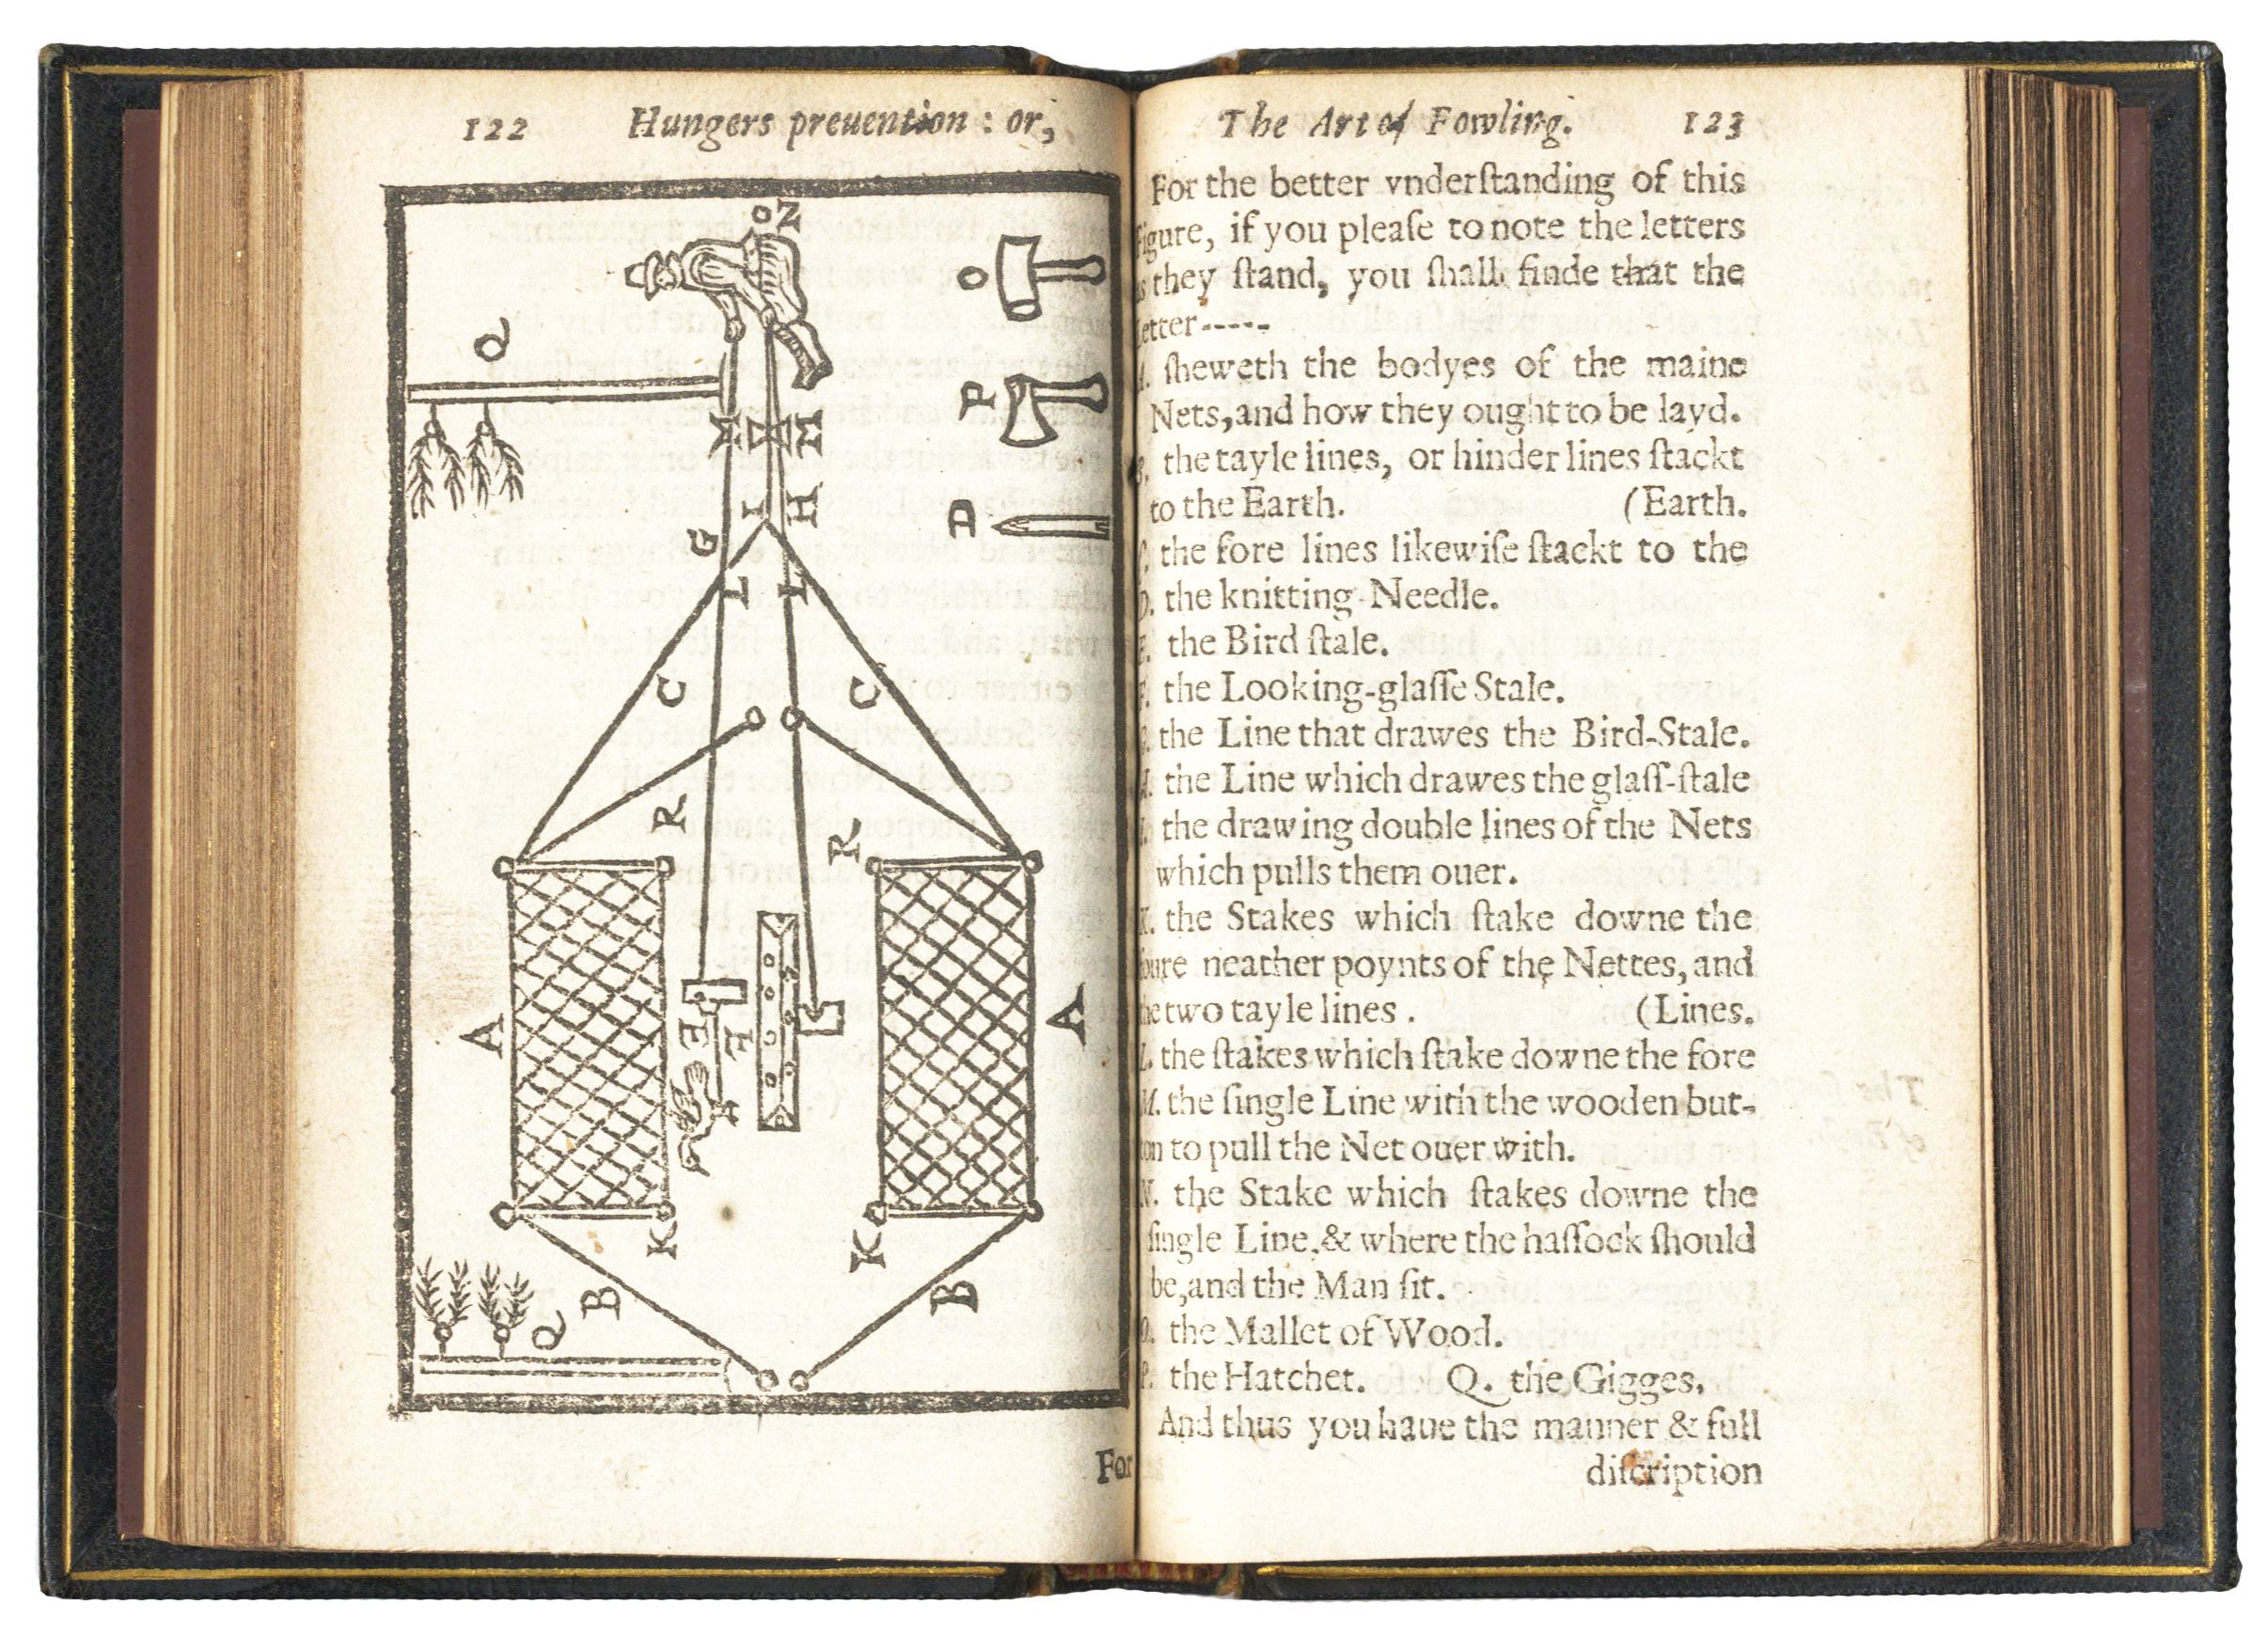 122 Hungers preuention : or,
N
O
Q
P
M M
I H
G
D
L L
C C
R
R
A
E
F
A
K
K
B
B
Q
For
The Art of Fowling. 123
For the better vnderſtanding of this
figure, if you pleaſe to note the letters
as they ſtand, you ſhall finde that the
letter-----
A. ſheweth the bodyes of the maine
Nets, and how they ought to be layd.
B. the tayle lines, or hinder lines ſtackt
to the Earth. (Earth.
C. the fore lines likewiſe ſtackt to the
D. the knitting-Needle.
E. the Bird ſtale.
F. the Looking-glaſſe Stale.
G. the Line that drawes the Bird-Stale.
H. the Line which drawes the glaſſ-ſtale
I. the drawing double lines of the Nets
which pulls them ouer.
K. the Stakes which ſtake downe the
foure neather poynts of the Nettes, and
the two tayle lines . (Lines.
L. the ſtakes which ſtake downe the fore
M. the ſingle Line with the wooden but-
ton to pull the Net ouer with.
N. the Stake which ſtakes downe the
ſingle Line, & where the haſſock ſhould
be, and the Man ſit.
O. the Mallet of Wood.
P. the Hatchet. Q. the Gigges.
And thus you haue the manner & full
diſcription